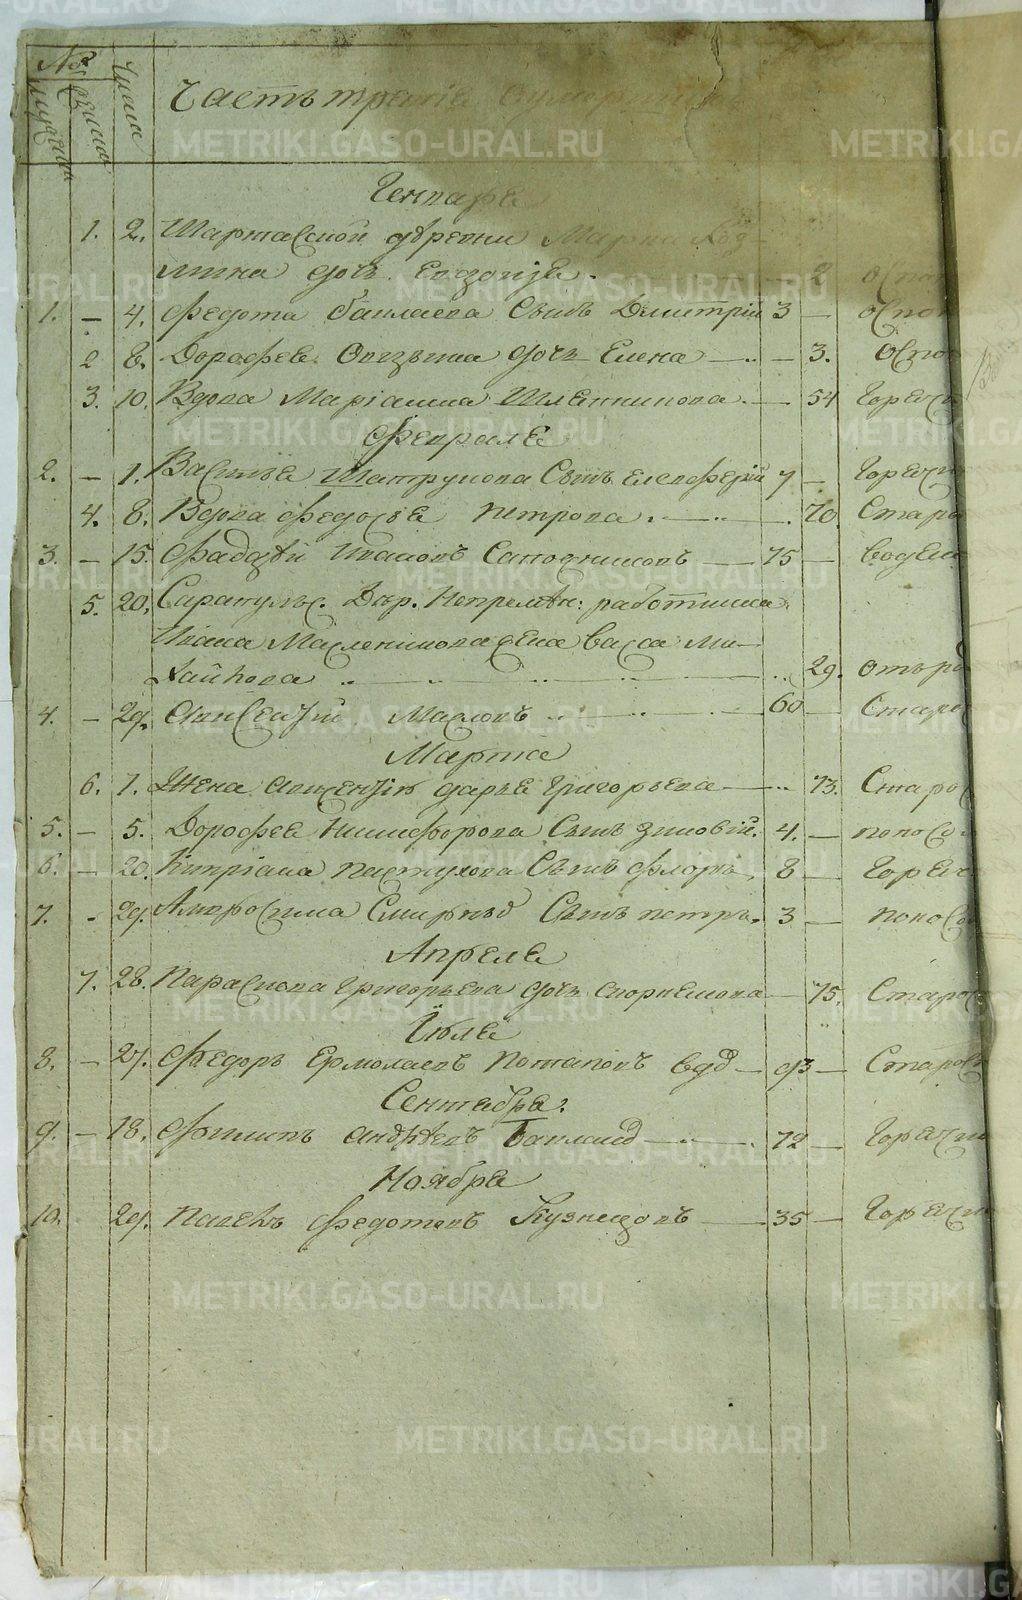 №
мужчин женск числа Часть третiя о умершихъ
Генваря
1. 2. Шарташской деревни Марка
дочь 2 оспо
1. – 4. Федота Баплаева сынъ Димитрiй 3 – оспо
2 8. Дорофея дочь Елена – 3. оспо
3. 10. Вдова Марiамна Шлепникова – 54 Горяч
Февраля
2. – 1. Шатрунова сынъ 7 – Горяч
4. 8. Вдова Федосья Петрова 70. Стар
3. – 15. Фадѣй Ивановъ Сапожниковъ – 75 – водян
5. 20. Сарапульс. дер. Непремѣн: работника
Ивана Масленикова жена Васса Ми-
хайлова 29. отъ
4. – 29. Авксентiй Масловъ 60 – Старос
Марта
6. 1. Жена Авксентiя Дарья Григорьева – 73. Старос
5. – 5. Дорофея Никифорова сынъ Зиновiй. 4. – поносом
6. – 20. Кипрiана Пастухова сынъ Флоръ, 8 – Горяч
7. - 29. Амвросима сынъ Петръ. 3 – понос
Апреля
7. 28. Параскева Григорьева дочь – 75. Старос
Iюля
8. – 27. Федоръ Ермолаевъ Потаповъ вдв – 93 – Старос
Сентября.
9. – 18. Филипъ Андрѣевъ – 72 – Горячк
Ноября
10. 29. Павелъ Федотовъ Кузнецовъ – 35 – Горячк
METRIKI.GASO-URAL.RU